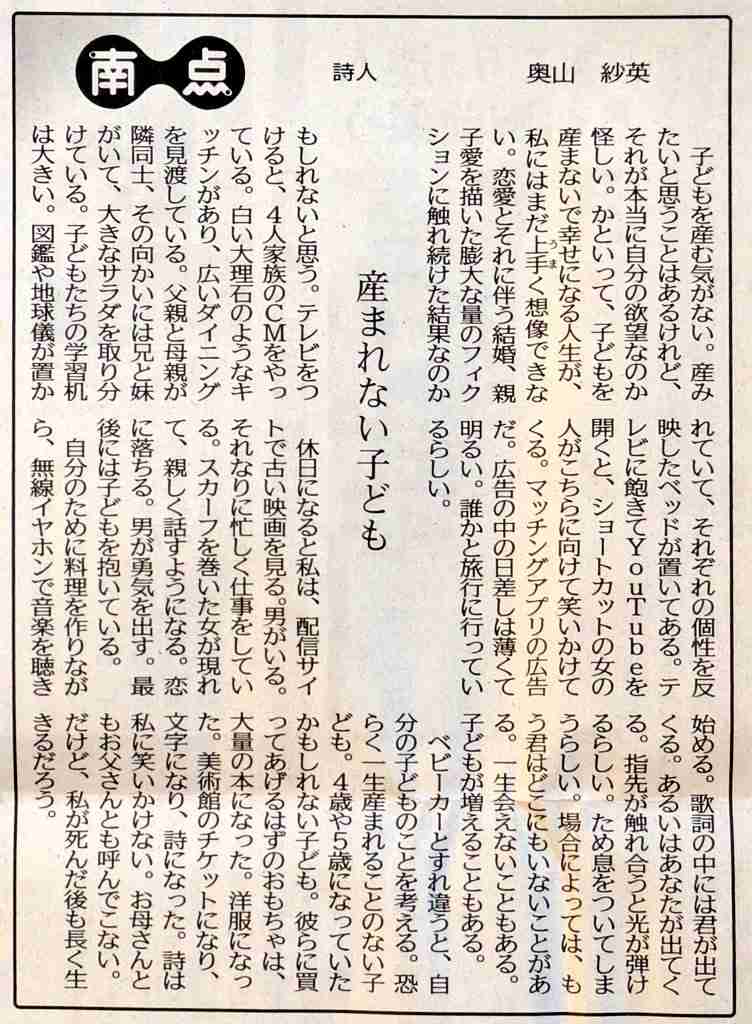 南点
奥山 紗英
詩人
産まれない子ども
子どもを産む気がない。産み
たいと思うことはあるけれど、
それが本当に自分の欲望なのか
怪しい。かといって、子どもを
産まないで幸せになる人生が、
私にはまだ上手く想像できな
うま
い。恋愛とそれに伴う結婚、親
子愛を描いた膨大な量のフィク
ションに触れ続けた結果なのか
もしれないと思う。テレビをつ
けると、4人家族のCMをやっ
ている。白い大理石のようなキ
ッチンがあり、広いダイニング
を見渡している。父親と母親が
隣同士、その向かいには兄と妹
がいて、大きなサラダを取り分
けている。子どもたちの学習机
は大きい。図鑑や地球儀が置か
れていて、それぞれの個性を反
映したベッドが置いてある。テ
レビに飽きてYouTubeを
開くと、ショートカットの女の
人がこちらに向けて笑いかけて
くる。マッチングアプリの広告
だ。広告の中の日差しは薄くて
明るい。誰かと旅行に行ってい
るらしい。
休日になると私は、配信サイ
トで古い映画を見る。男がいる。
それなりに忙しく仕事をしてい
る。スカーフを巻いた女が現れ
て、親しく話すようになる。恋
に落ちる。男が勇気を出す。最
後には子どもを抱いている。
自分のために料理を作りなが
ら、無線イヤホンで音楽を聴き
始める。歌詞の中には君が出て
くる。あるいはあなたが出てく
る。指先が触れ合うと光が弾け
るらしい。ため息をついてしま
うらしい。場合によっては、も
う君はどこにもいないことがあ
る。一生会えないこともある。
子どもが増えることもある。
ベビーカーとすれ違うと、自
分の子どものことを考える。恐
らく一生産まれることのない子
ども。4歳や5歳になっていた
かもしれない子ども。彼らに買
ってあげるはずのおもちゃは、
大量の本になった。洋服になっ
た。美術館のチケットになり、
文字になり、詩になった。詩は
私に笑いかけない。お母さんと
もお父さんとも呼んでこない。
だけど、私が死んだ後も長く生
きるだろう。